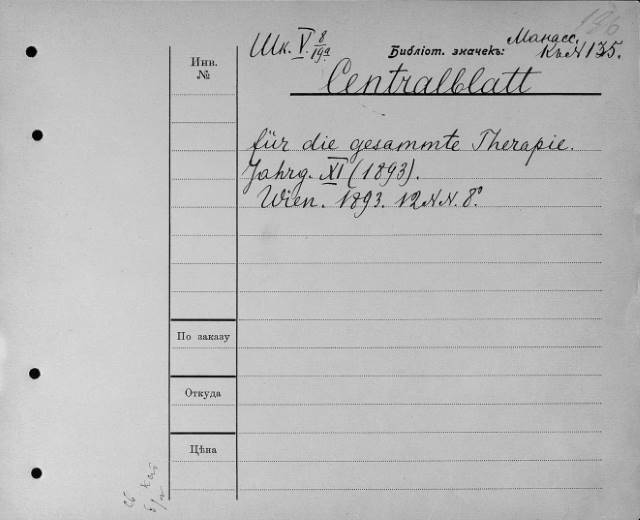 126
Шк. V. 8/19а
Библіот. значекъ: Манасс.
Къ N 135.
Инв.
№
Centralblatt
für die gesammte Therapie.
Jahrg. XI (1893).
Wien. 1893. 12 N.N. 8°.
По заказу
Откуда
Цѣна